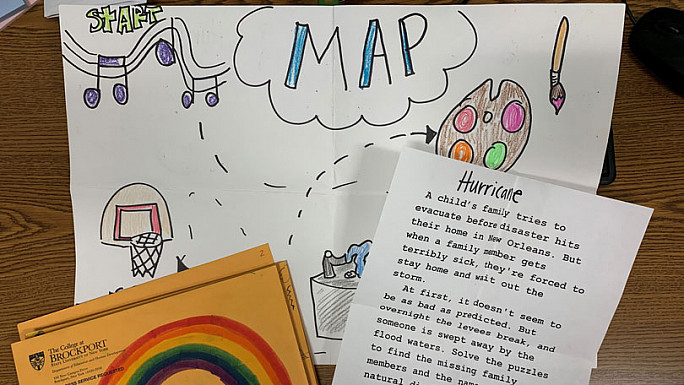 START
MAP
Hurricane
A child's family tries to
evacuate before disaster hits
their home in New Orleans. But
when a family member gets
terribly sick, they're forced to
stay home and wait out the
storm.
At first, it doesn't seem to
be as bad as predicted. But
overnight the levees break, and
someone is swept away by the
flood waters. Solve the puzzles
to find the missing family
members and the
natural
2
The College at
BROCKPORT
STATE UNIVERSITY OF NEW YORK
SERVICE REQUESTED